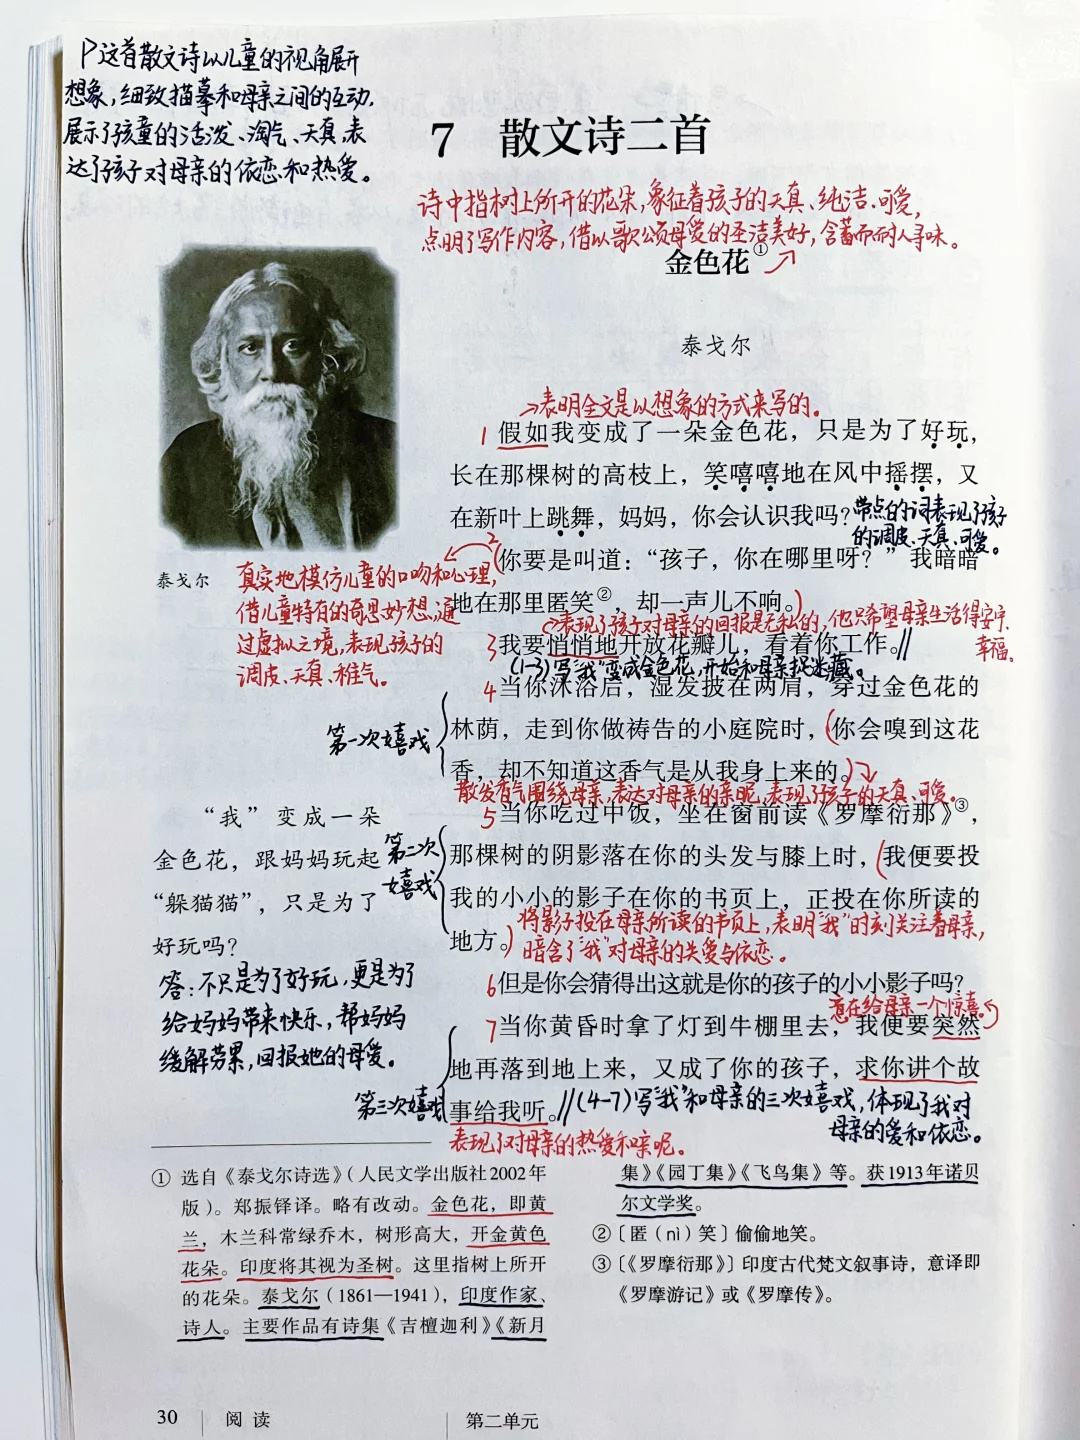 这首散文诗以儿童的视角展开
想象,细致描摹和母亲之间的互动,
展示了孩童的活泼、淘气、天真,表
达了孩子对母亲的依恋和热爱。
7 散文诗二首
诗中指树上所开的花朵,象征着孩子的天真、纯洁、可爱,
点明了写作内容,借以歌颂母爱的圣洁美好,含蓄而耐人寻味。
金色花①
泰戈尔
→表明全文是以想象的方式来写的。
1 假如我变成了一朵金色花,只是为了好玩,
长在那棵树的高枝上,笑嘻嘻地在风中摇摆,又
在新叶上跳舞,妈妈,你会认识我吗?
带点的词表现了孩子
的调皮、天真、可爱。
2 你要是叫道:“孩子,你在哪里呀?”我暗暗
地在那里匿笑②,却一声儿不响。
泰戈尔
真实地模仿儿童的口吻和心理,
借儿童特有的奇思妙想,通
过虚拟之境,表现孩子的
调皮、天真、稚气。
→表现了孩子对母亲的回报是无私的,他只希望母亲生活得安宁、
幸福。
3 我要悄悄地开放花瓣儿,看着你工作。//
(1-3)写“我”变成金色花,开始和母亲捉迷藏。
4 当你沐浴后,湿发披在两肩,穿过金色花的
第一次嬉戏
林荫,走到你做祷告的小庭院时,(你会嗅到这花
香,却不知道这香气是从我身上来的。)
散发香气围绕母亲,表达对母亲的亲昵,表现了孩子的天真、可爱。
5 当你吃过中饭,坐在窗前读《罗摩衍那》③,
第二次
嬉戏
那棵树的阴影落在你的头发与膝上时,(我便要投
我的小小的影子在你的书页上,正投在你所读的
地方。)
将影子投在母亲所读的书页上,表明“我”时刻关注着母亲,
暗含了“我”对母亲的关爱与依恋。
“我”变成一朵
金色花,跟妈妈玩起
“躲猫猫”,只是为了
好玩吗?
答:不只是为了好玩,更是为了
给妈妈带来快乐,帮妈妈
缓解劳累,回报她的母爱。
6 但是你会猜得出这就是你的孩子的小小影子吗?
意在给母亲一个惊喜。
7 当你黄昏时拿了灯到牛棚里去,我便要突然
地再落到地上来,又成了你的孩子,求你讲个故
第三次嬉戏
事给我听。//
(4-7)写“我”和母亲的三次嬉戏,体现了我对
母亲的爱和依恋。
表现了对母亲的热爱和亲昵。
① 选自《泰戈尔诗选》(人民文学出版社2002年
版)。郑振铎译。略有改动。金色花,即黄
兰,木兰科常绿乔木,树形高大,开金黄色
花朵。印度将其视为圣树。这里指树上所开
的花朵。泰戈尔(1861—1941),印度作家、
诗人。主要作品有诗集《吉檀迦利》《新月
集》《园丁集》《飞鸟集》等。获1913年诺贝
尔文学奖。
②〔匿(nì)笑〕偷偷地笑。
③〔《罗摩衍那》〕印度古代梵文叙事诗,意译即
《罗摩游记》或《罗摩传》。
30 阅读 第二单元